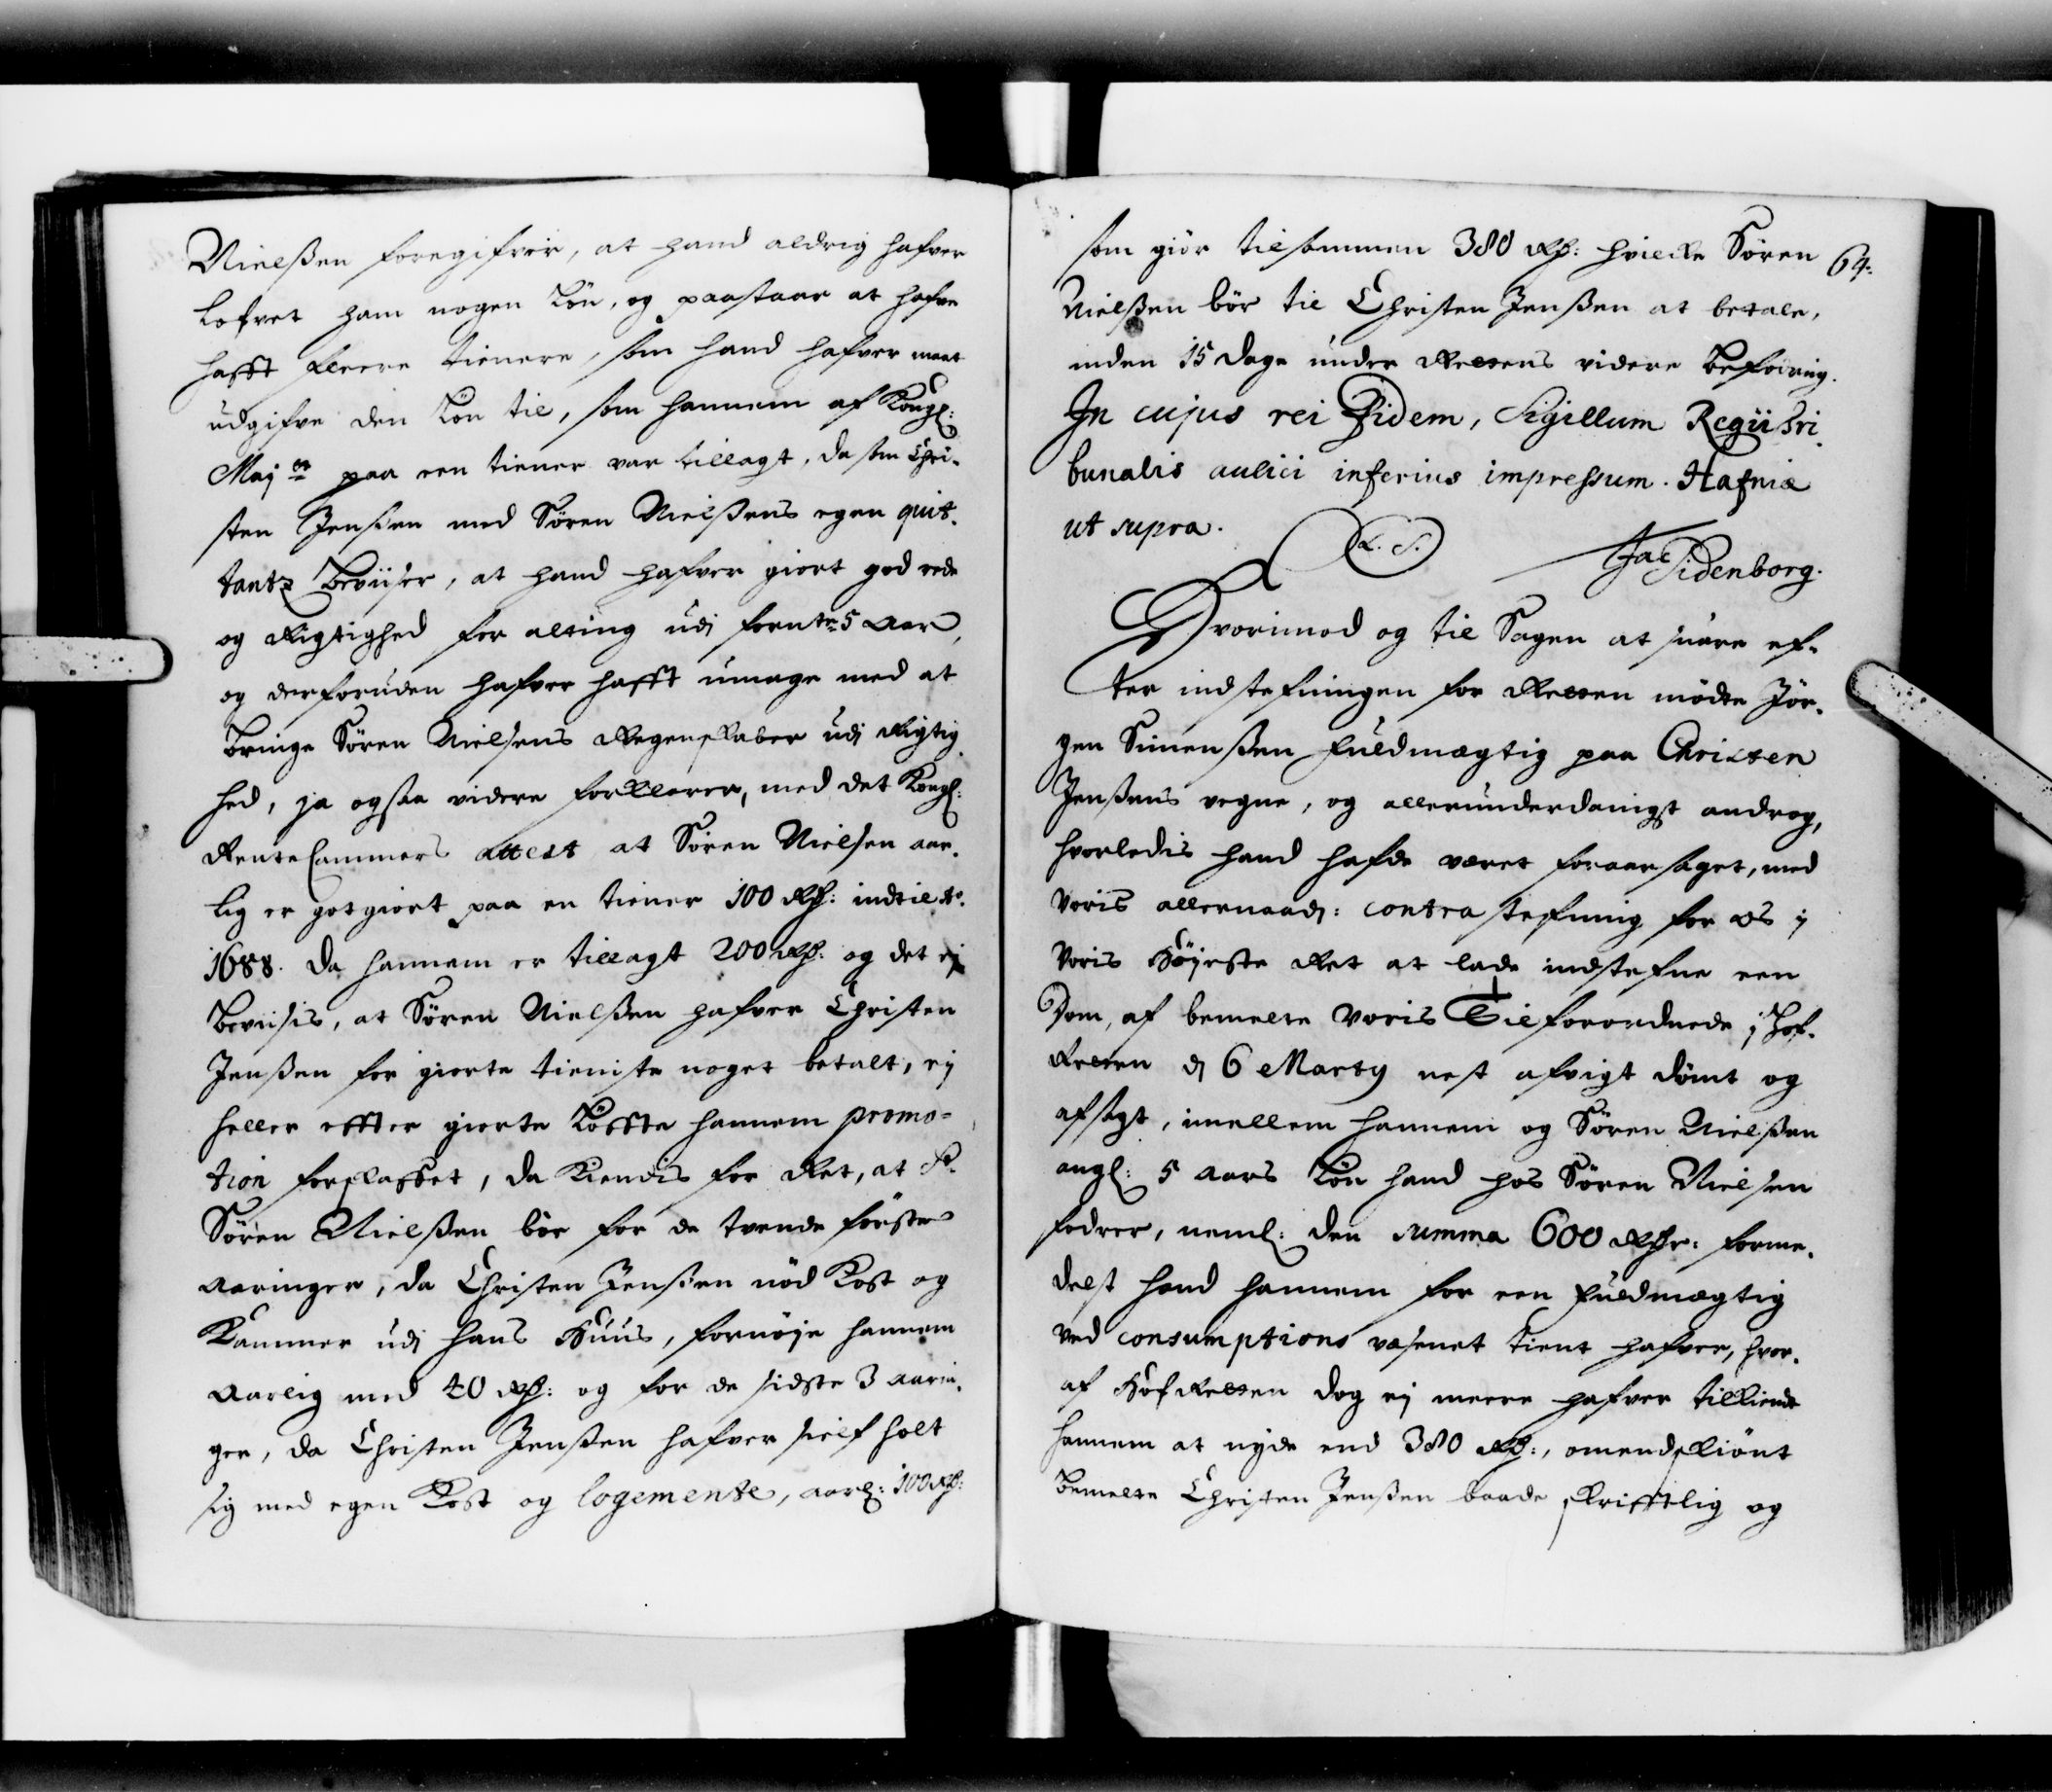 Nielßen foregifver, at hand aldrig hafver
lofvet ham nogen Løn, og paastaar at hafve
hafft fleere tienere, som hand hafver maat
udgifve den Løn til, som hannem af Kongl:
Maj tt paa een tiener var tillagt, da som Chri-
sten Jenßen med Søren Nielßens egen quit-
tantz beviiser, at hand hafver giort god rede
og Rigtighed for alting udj fornte 5 Aar,
og derforuden hafver hafft umage med at
bringe Søren Nielsens Regenskaber udj Rigtig
hed, ja ogsaa videre forklarer, med det Kongl:
RenteCammers attest at Søren Nielsen aar-
lig er gotgiort paa en tiener 100 Rd: indtil Ao.
1688. da hannem er tillagt 200 Rd: og det ej
beviisis, at Søren Nielßen hafver Christen
Jenßen for giorte tieniste noget betalt, ej
heller effter giorte Løffte hannem promo-
tion forskaffet, da Kiendis for Ret, at Sr.
Søren Nielßen bør for de tvende første
Aaringer, da Christen Jenßen nød Kost og
Kammer udj hans Huus, fornøje hannem
Aarlig med 40 Rd: og for de sidste 3 Aarin-
ger, da Christen Jenßen hafver sielf holt
sig med egen Kost og logemente, aarl: 100 Rd:
som giør tilsammen 380 Rd: hvilke Søren 64.
Nielßen bør til Christen Jenßen at betale,
inden 15 dage under Rettens videre beføring.
In cujus rei Fidem, Sigillum Regii Tri-
bunalis aulici inferius impressum. Hafniæ
ut supra.
L. S.
Jac Sidenborg.
Hvorimod og til Sagen at suare ef-
ter indstefningen for Retten mødte Jør-
gen Simenßen Fuldmægtig paa Christen
Jenßens vegne, og allerunderdanigst androg,
hvorledis hand hafde været foraarsaget, med
voris allernaad: contra stefning for os i
voris Høyeste Ret at lade indstefne een
Dom, af bemelte voris Tilforordnede i Hof-
Retten d 6 Marty nest afvigt dømt og
afsagt, imellem hannem og Søren Nielßen
angl: 5 aars Løn hand hos Søren Nielsen
fodrer, neml: den summa 600 Rdr: forme-
delst hand hannem for een Fuldmægtig
ved consumptions væsenet tient hafver, hvor-
af HofRetten dog ej meere hafver tilkiendt
hannem at nyde end 380 Rd:, omendskiønt
bemelte Christen Jenßen baade skrifftlig og